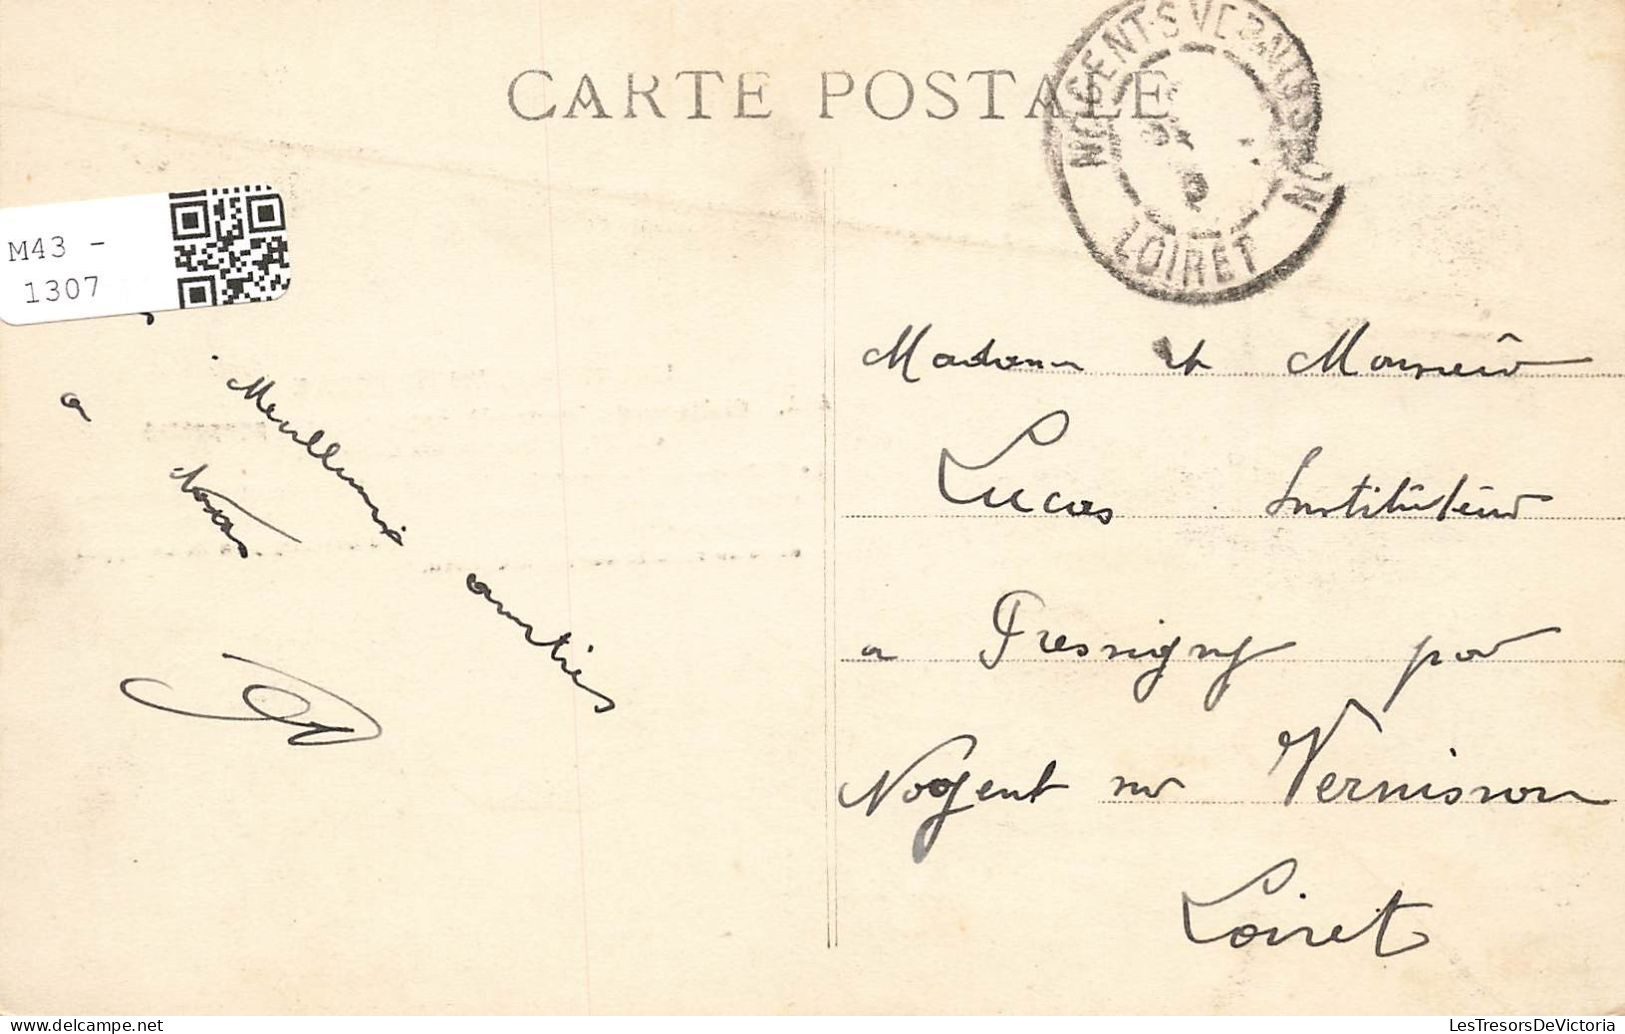 CARTE POSTALE
NOGENT-S-VERNISSON
LOIRET
M43 -
1307
Meilleures amitiés
a tous
Madame et Monsieur
Lucas Instituteur
a Pressigny par
Nogent sur Vernisson
Loiret
LesTresorsDeVictoria
delcampe.net